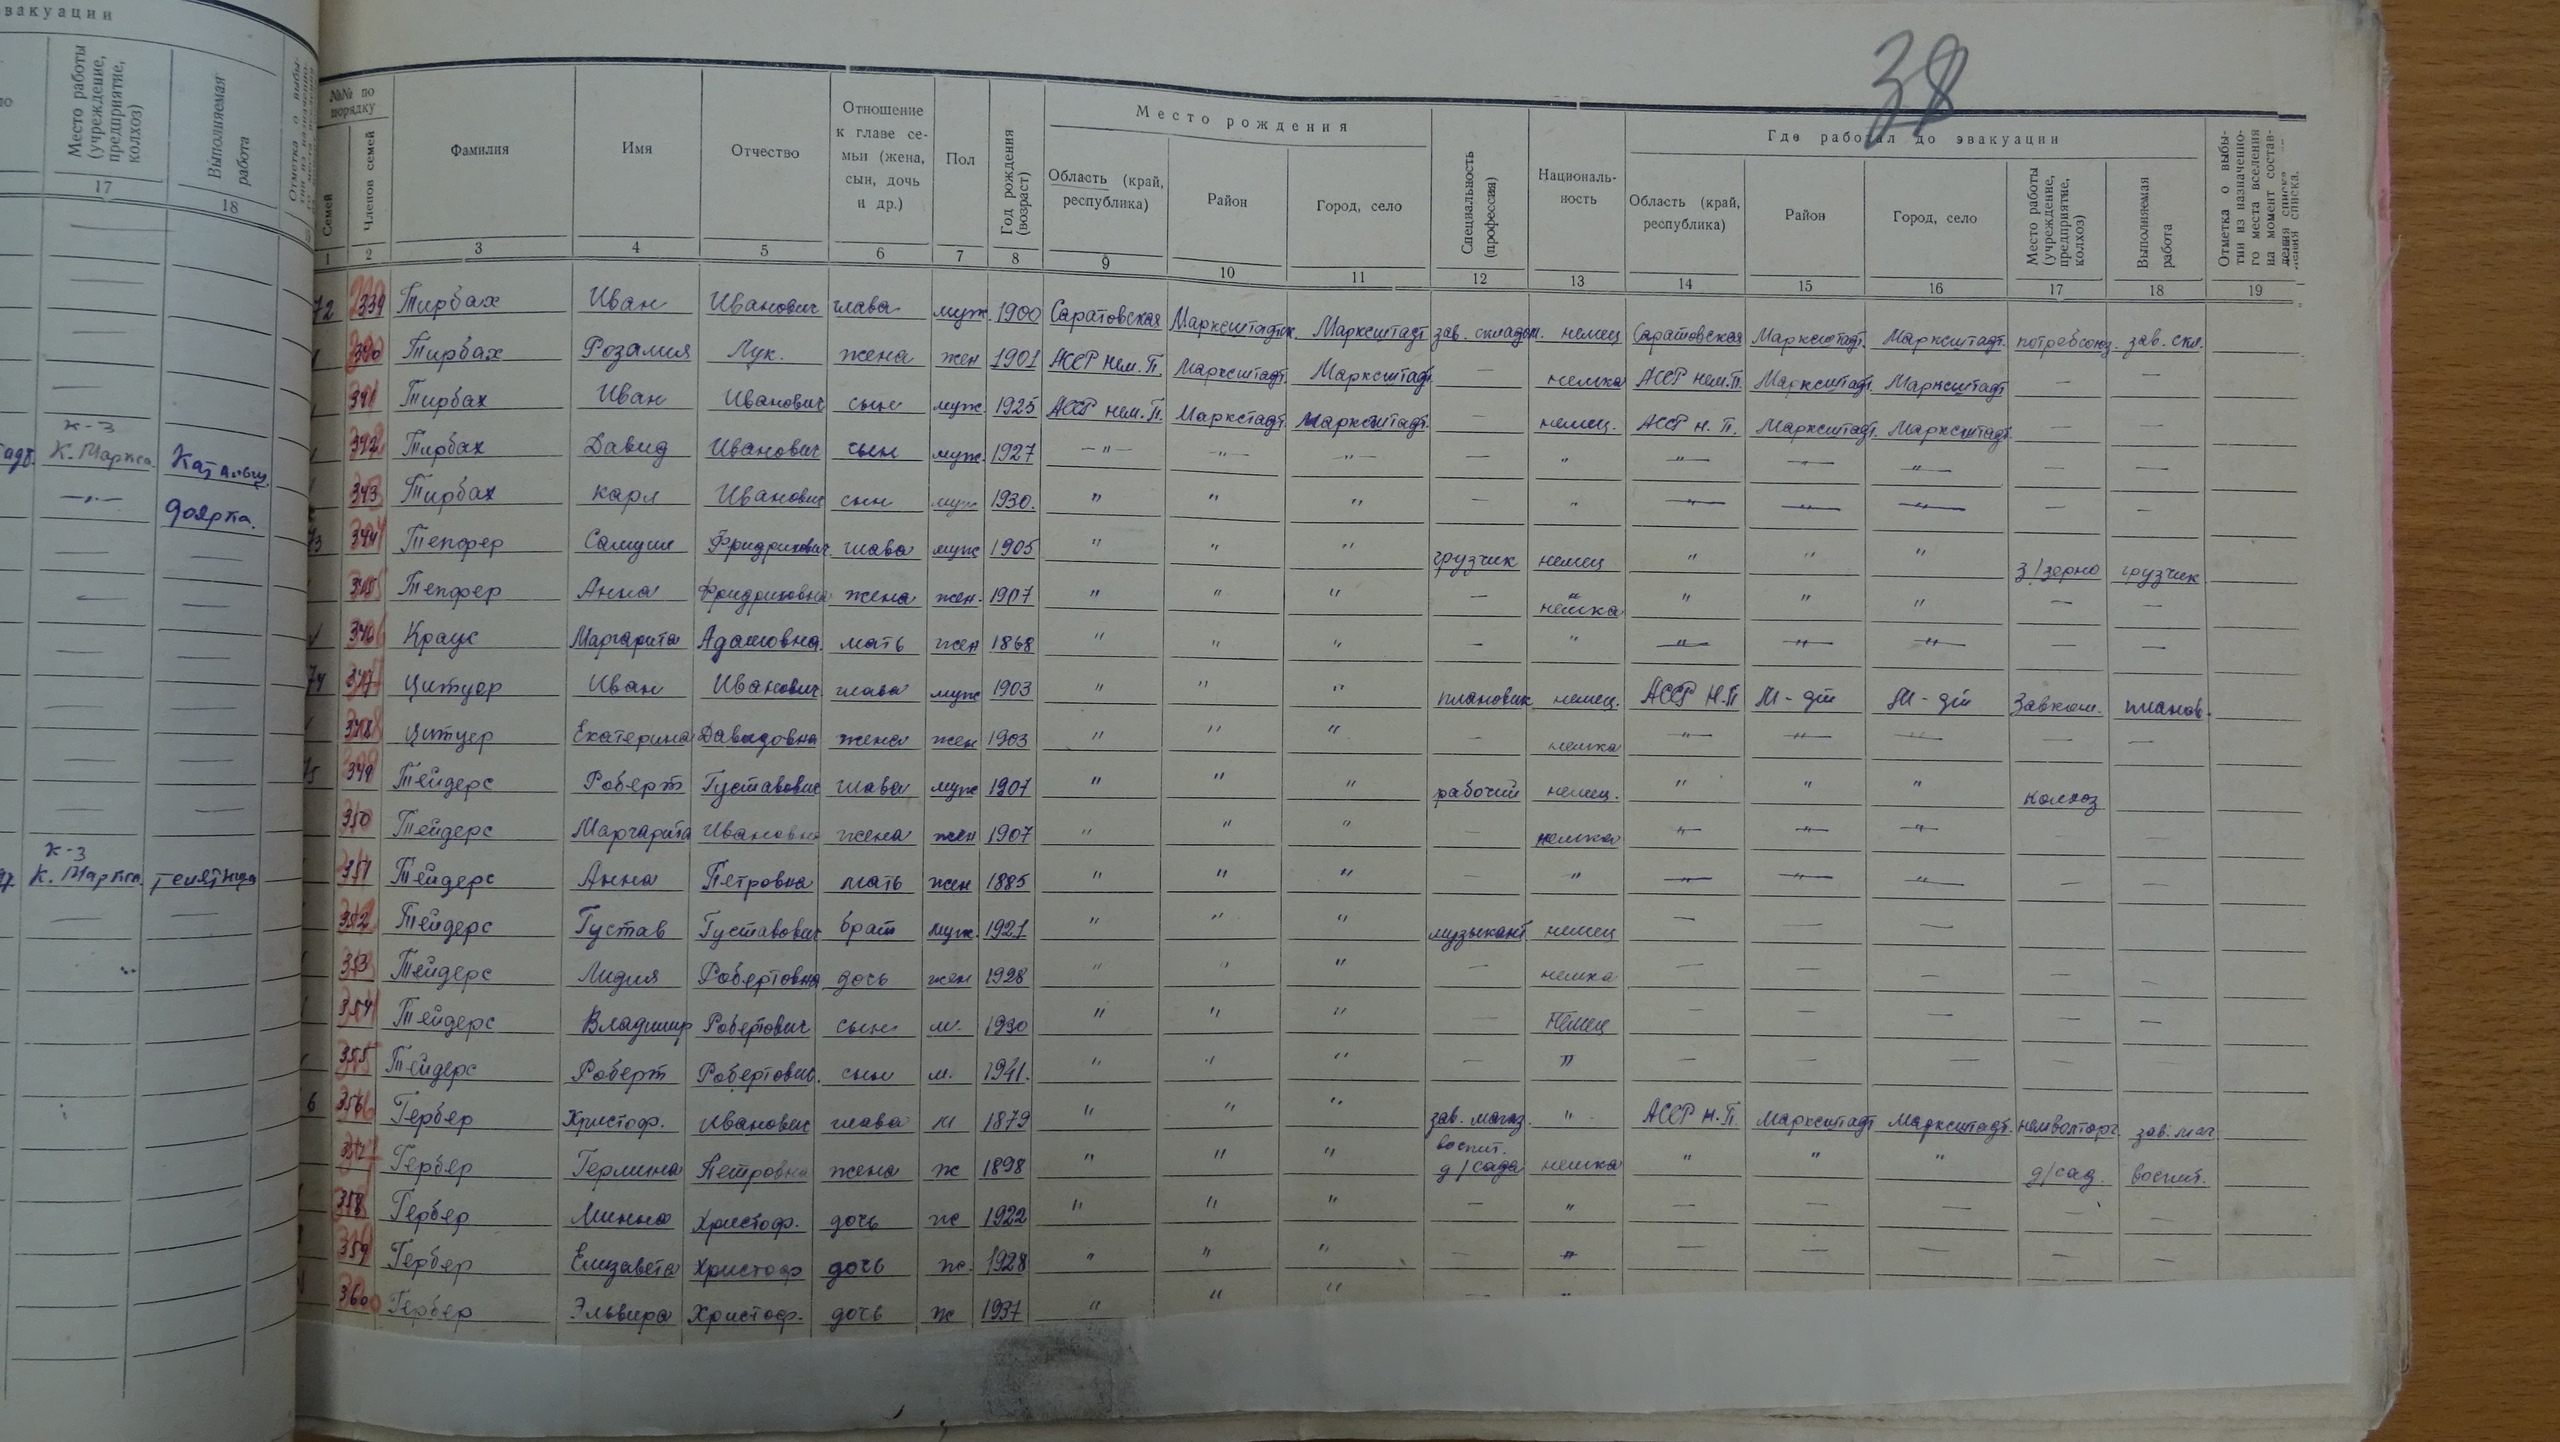 вакуации
Место работы (учреждение, предприятие, колхоз)
Выполняемая работа
17 18
к-з
К. Маркса
доярка.
к-з
К. Маркса
38
№№ по порядку
Семей
Членов семей
Фамилия
Имя
Отчество
Отношение к главе семьи (жена, сын, дочь и др.)
Пол
Год рождения (возраст)
Место рождения
Область (край, республика)
Район
Город, село
Специальность (профессия)
Националь-ность
Где работал до эвакуации
Область (край, республика)
Район
Город, село
Место работы (учреждение, предприятие, колхоз)
Выполняемая работа
Отметка о выбы-тии из назначенно-го места вселения на момент состав-ления списка.
1 2 3 4 5 6 7 8 9 10 11 12 13 14 15 16 17 18 19
72 339 Тирбах Иван Иванович глава муж. 1900 Саратовская Марксштадтск. Марксштадт зав. складом. немец Саратовская Марксштадт. Марксштадт. потребсоюз. зав. скл.
340 Тирбах Розалия Лук. жена жен 1901 АССР Нем. П. Марксштадт. Марксштадт — немка АССР нем. П. Марксштадт. Марксштадт — —
341 Тирбах Иван Иванович сын муж. 1925 АССР нем. П. Маркстадт. Марксштадт. — немец. АССР Н. П. Марксштадт. Марксштадт. — —
342 Тирбах Давид Иванович сын муж. 1927 —"— —"— —"— — " —"— —"— —"— — —
343 Тирбах Карл Иванович сын муж 1930. " " " — " —"— —"— —"— — —
73 344 Тепфер Самуил Фридрихович глава муж 1905 " " " грузчик немец " " " З/зерно грузчик
345 Тепфер Анна Фридриховна жена жен. 1907 " " " — немка " " " — —
346 Краус Маргарита Адамовна. мать жен 1868 " " " — " —"— —"— —"— — —
74 347 Цитцер Иван Иванович глава муж 1903 " " " плановик немец. АССР Н.П М-дт М-дт Завком. планов.
348 Цитцер Екатерина Давидовна жена жен 1903 " " " — немка —"— —"— —"— — —
75 349 Тейдерс Роберт Густавович глава муж 1907 " " " рабочий немец. " " " колхоз
350 Тейдерс Маргарита Ивановна жена жен 1907 " " " — немка —"— —"— —"— — —
351 Тейдерс Анна Петровна мать жен 1885 " " " — " —"— —"— —"— — —
352 Тейдерс Густав Густавович брат муж. 1921 " " " музыкант. немец — — — — —
353 Тейдерс Лидия Робертовна дочь жен 1928 " " " — немка — — — — —
354 Тейдерс Владимир Робертович сын м. 1930 " " " — Немец — — — — —
355 Тейдерс Роберт Робертович. сын м. 1941. " " " — " — — — — —
6 356 Гербер Христоф. Иванович глава м 1879 " " " зав. магаз. " АССР Н. П. Марксштадт Марксштадт. немволторг зав. маг
357 Гербер Гермина Петровна жена ж 1898 " " " воспит. д/сада немка " " " д/сад. воспит.
358 Гербер Минна Христоф. дочь ж 1922 " " " — " — — — — —
359 Гербер Елизавета Христоф дочь ж. 1928 " " " — " — — — — —
360 Гербер Эльвира Христоф. дочь ж 1937 " " " — "